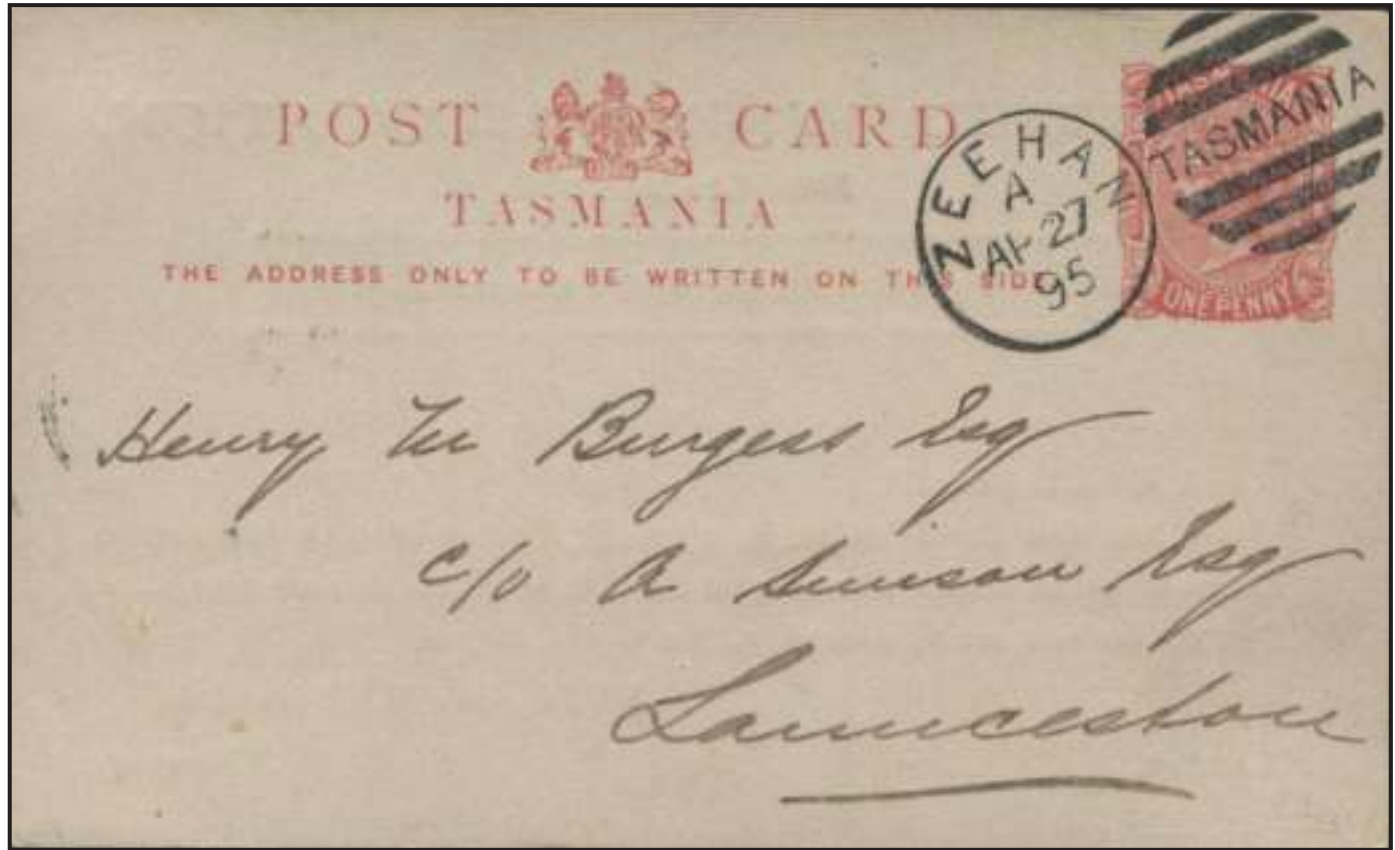 POST CARD
TASMANIA
THE ADDRESS ONLY TO BE WRITTEN ON THIS SIDE
ZEEHAN
A
AP 27
95
TASMANIA
ONE PENNY
Henry Burgess Esq
c/o A Simson Esq
Launceston